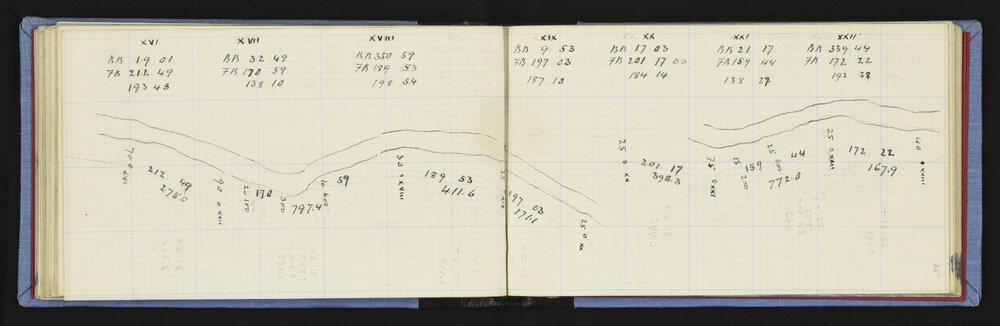 XVI
BB 19 01
FB 212 49
193 48
XVII
BB 32 49
FB 170 59
138 10
XVIII
BB 350 59
FB 189 53
198 54
XIX
BB 9 53
FB 197 03
187 10
XX
BB 17 03
FB 201 17 00
184 14
XXI
BB 21 17
FB 159 44
138 27
XXII
BB 339 44
FB 172 22
192 38
70 0 XVI
212 49
275.0
90 0 XVII
20 100
170 59
300
797.4
10 600
50 XVIII
189 53
411.6
25 XIX
197 03
171.1
25 0 XX
25 0 XX
201 17
398.3
75 0 XXI
15 200
159 44
25 600
772.0
25 0 XXII
172 22
167.9
40 0 XVIII
35